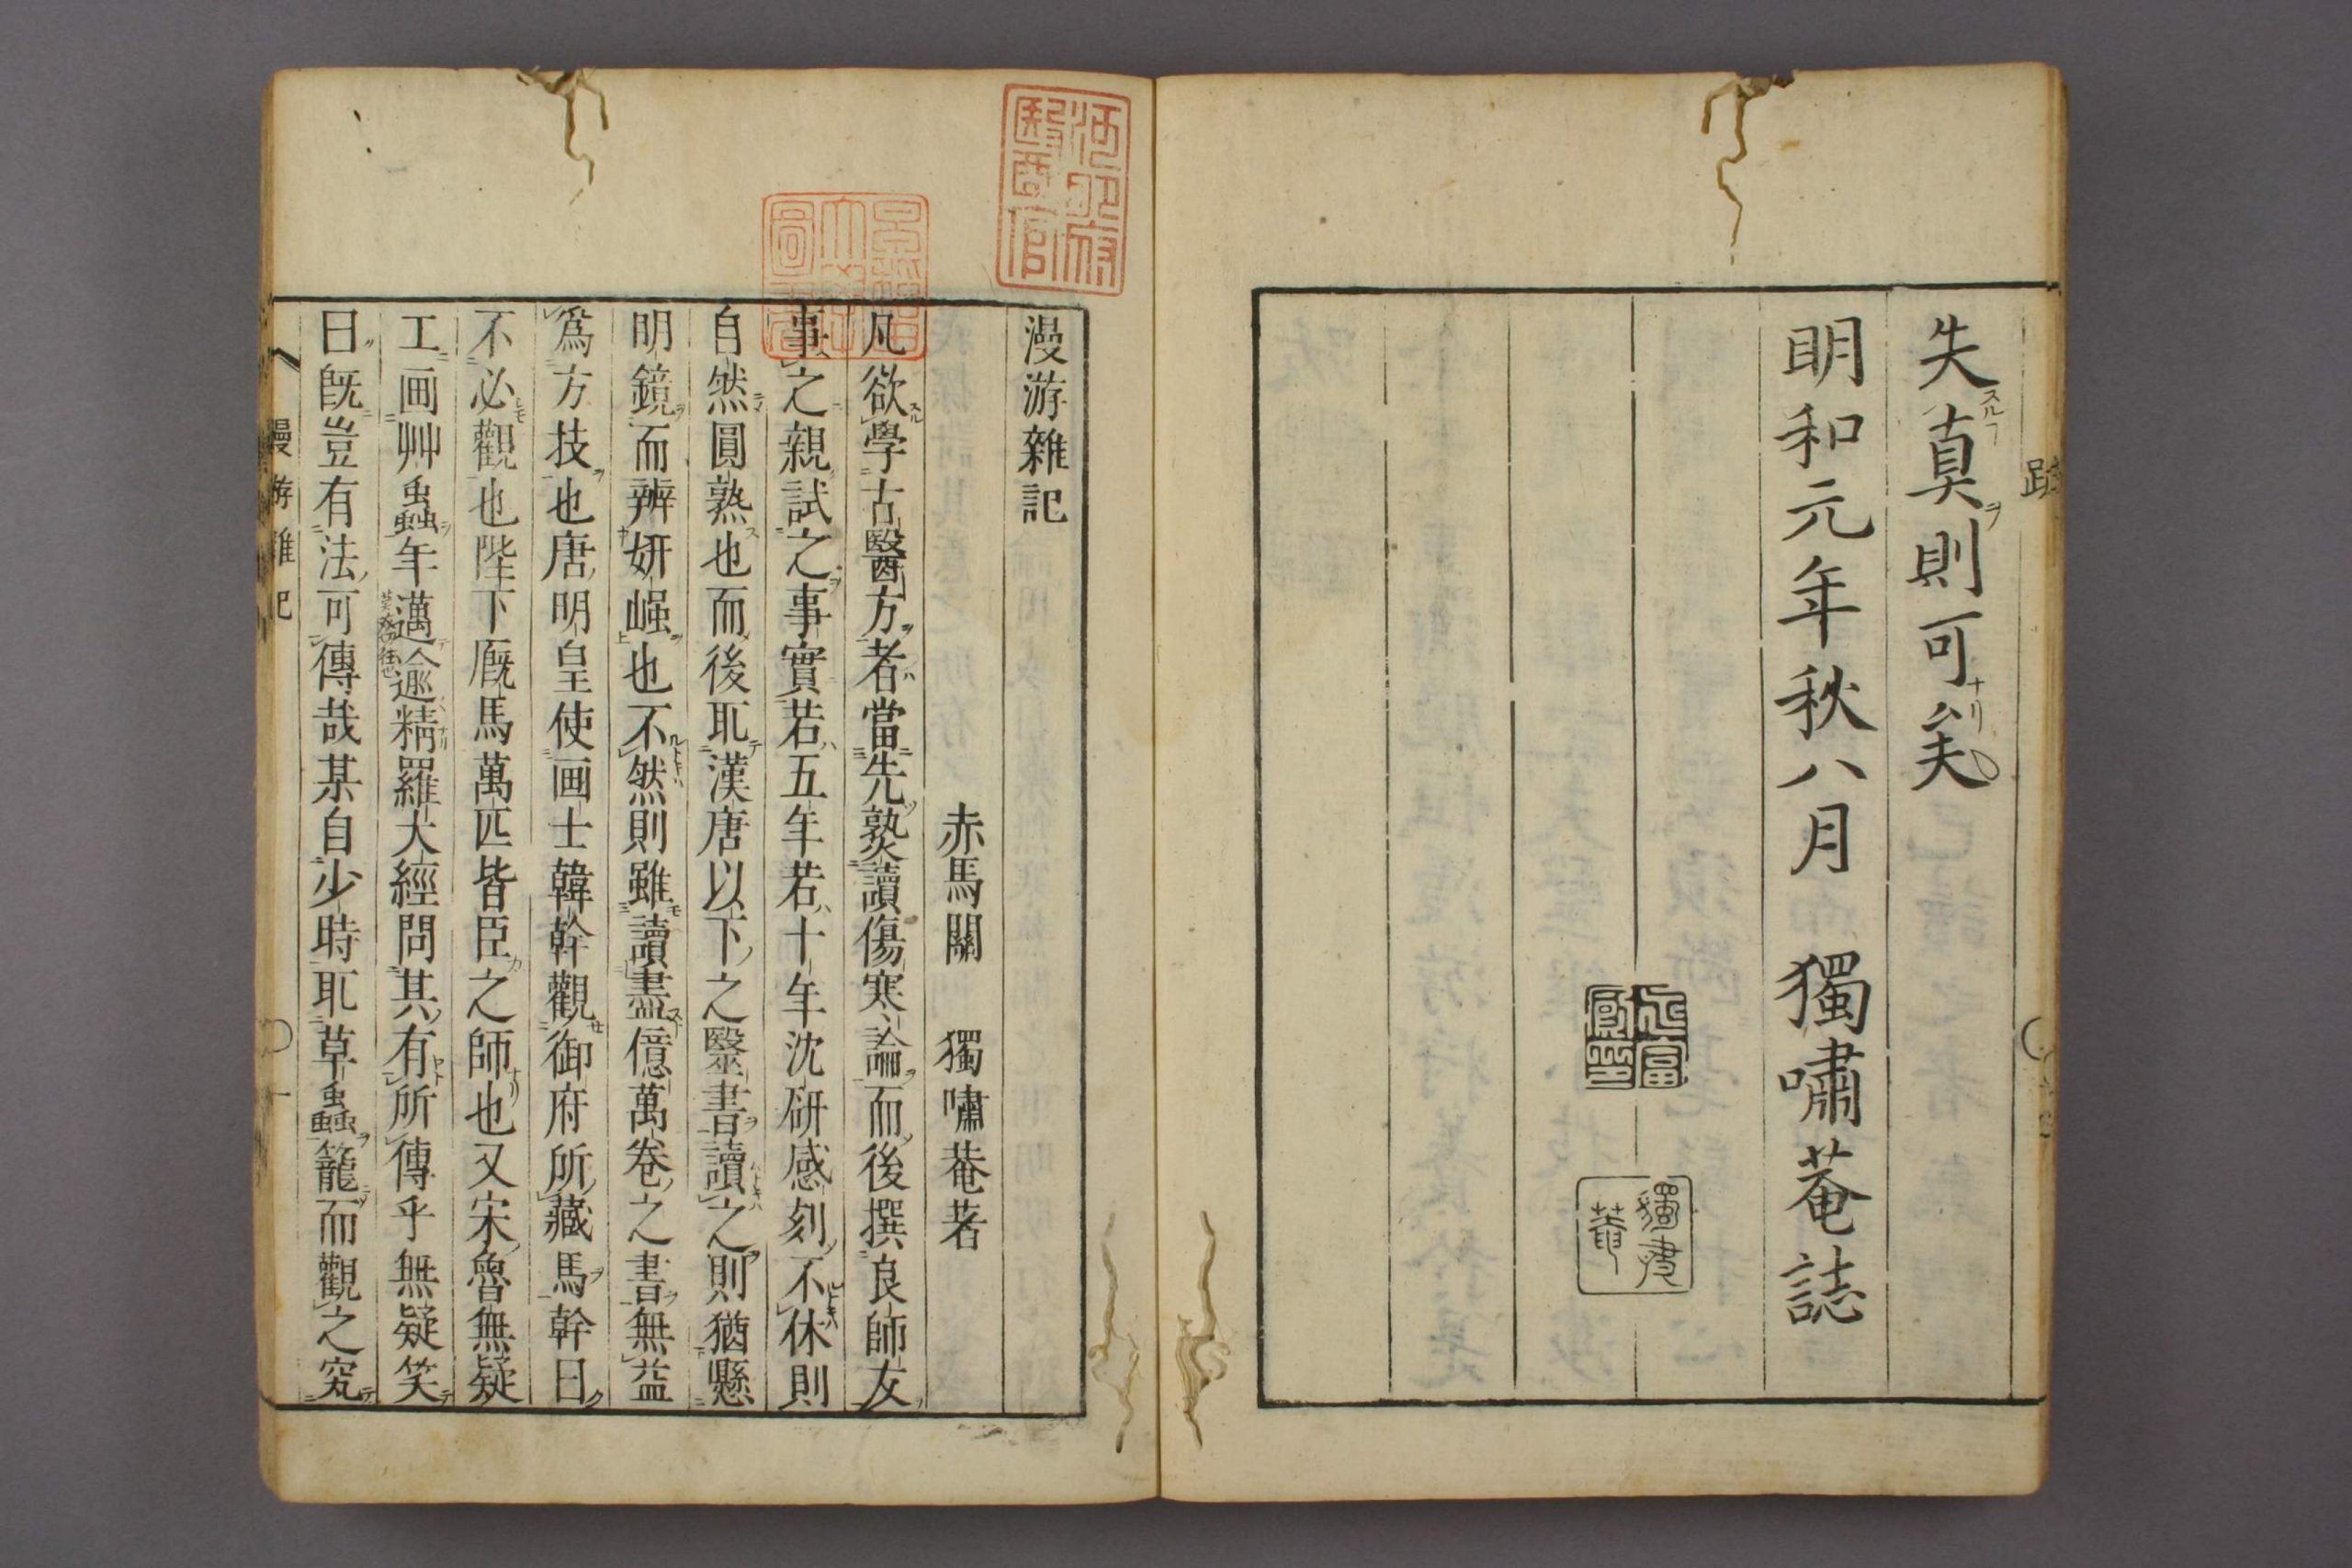 失真則可矣
明和元年秋八月　獨嘯菴誌
獨嘯菴
漫游雜記
赤馬關　獨嘯菴著
凡欲學古醫方者當先熟讀傷寒論而後撰良師友
事之親試之事實若五年若十年沈研感刻不休則
自然圓熟也而後取漢唐以下之醫書讀之則猶懸
明鏡而辨妍嫫也不然則雖讀盡億萬卷之書無益
爲方技也唐明皇使画士韓幹觀御府所藏馬幹曰
不必觀也陛下厩馬萬匹皆臣之師也又宋魯無疑
工画艸蟲年邁逾精羅大經問其有所傳乎無疑笑
曰既豈有法可傳哉某自少時取草蟲籠而觀之窮
漫游雜記
一